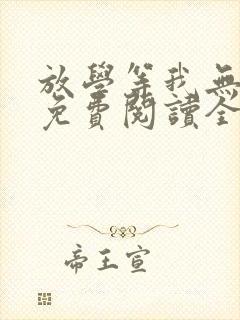 放學等我無
免費閱讀全
帝王宣